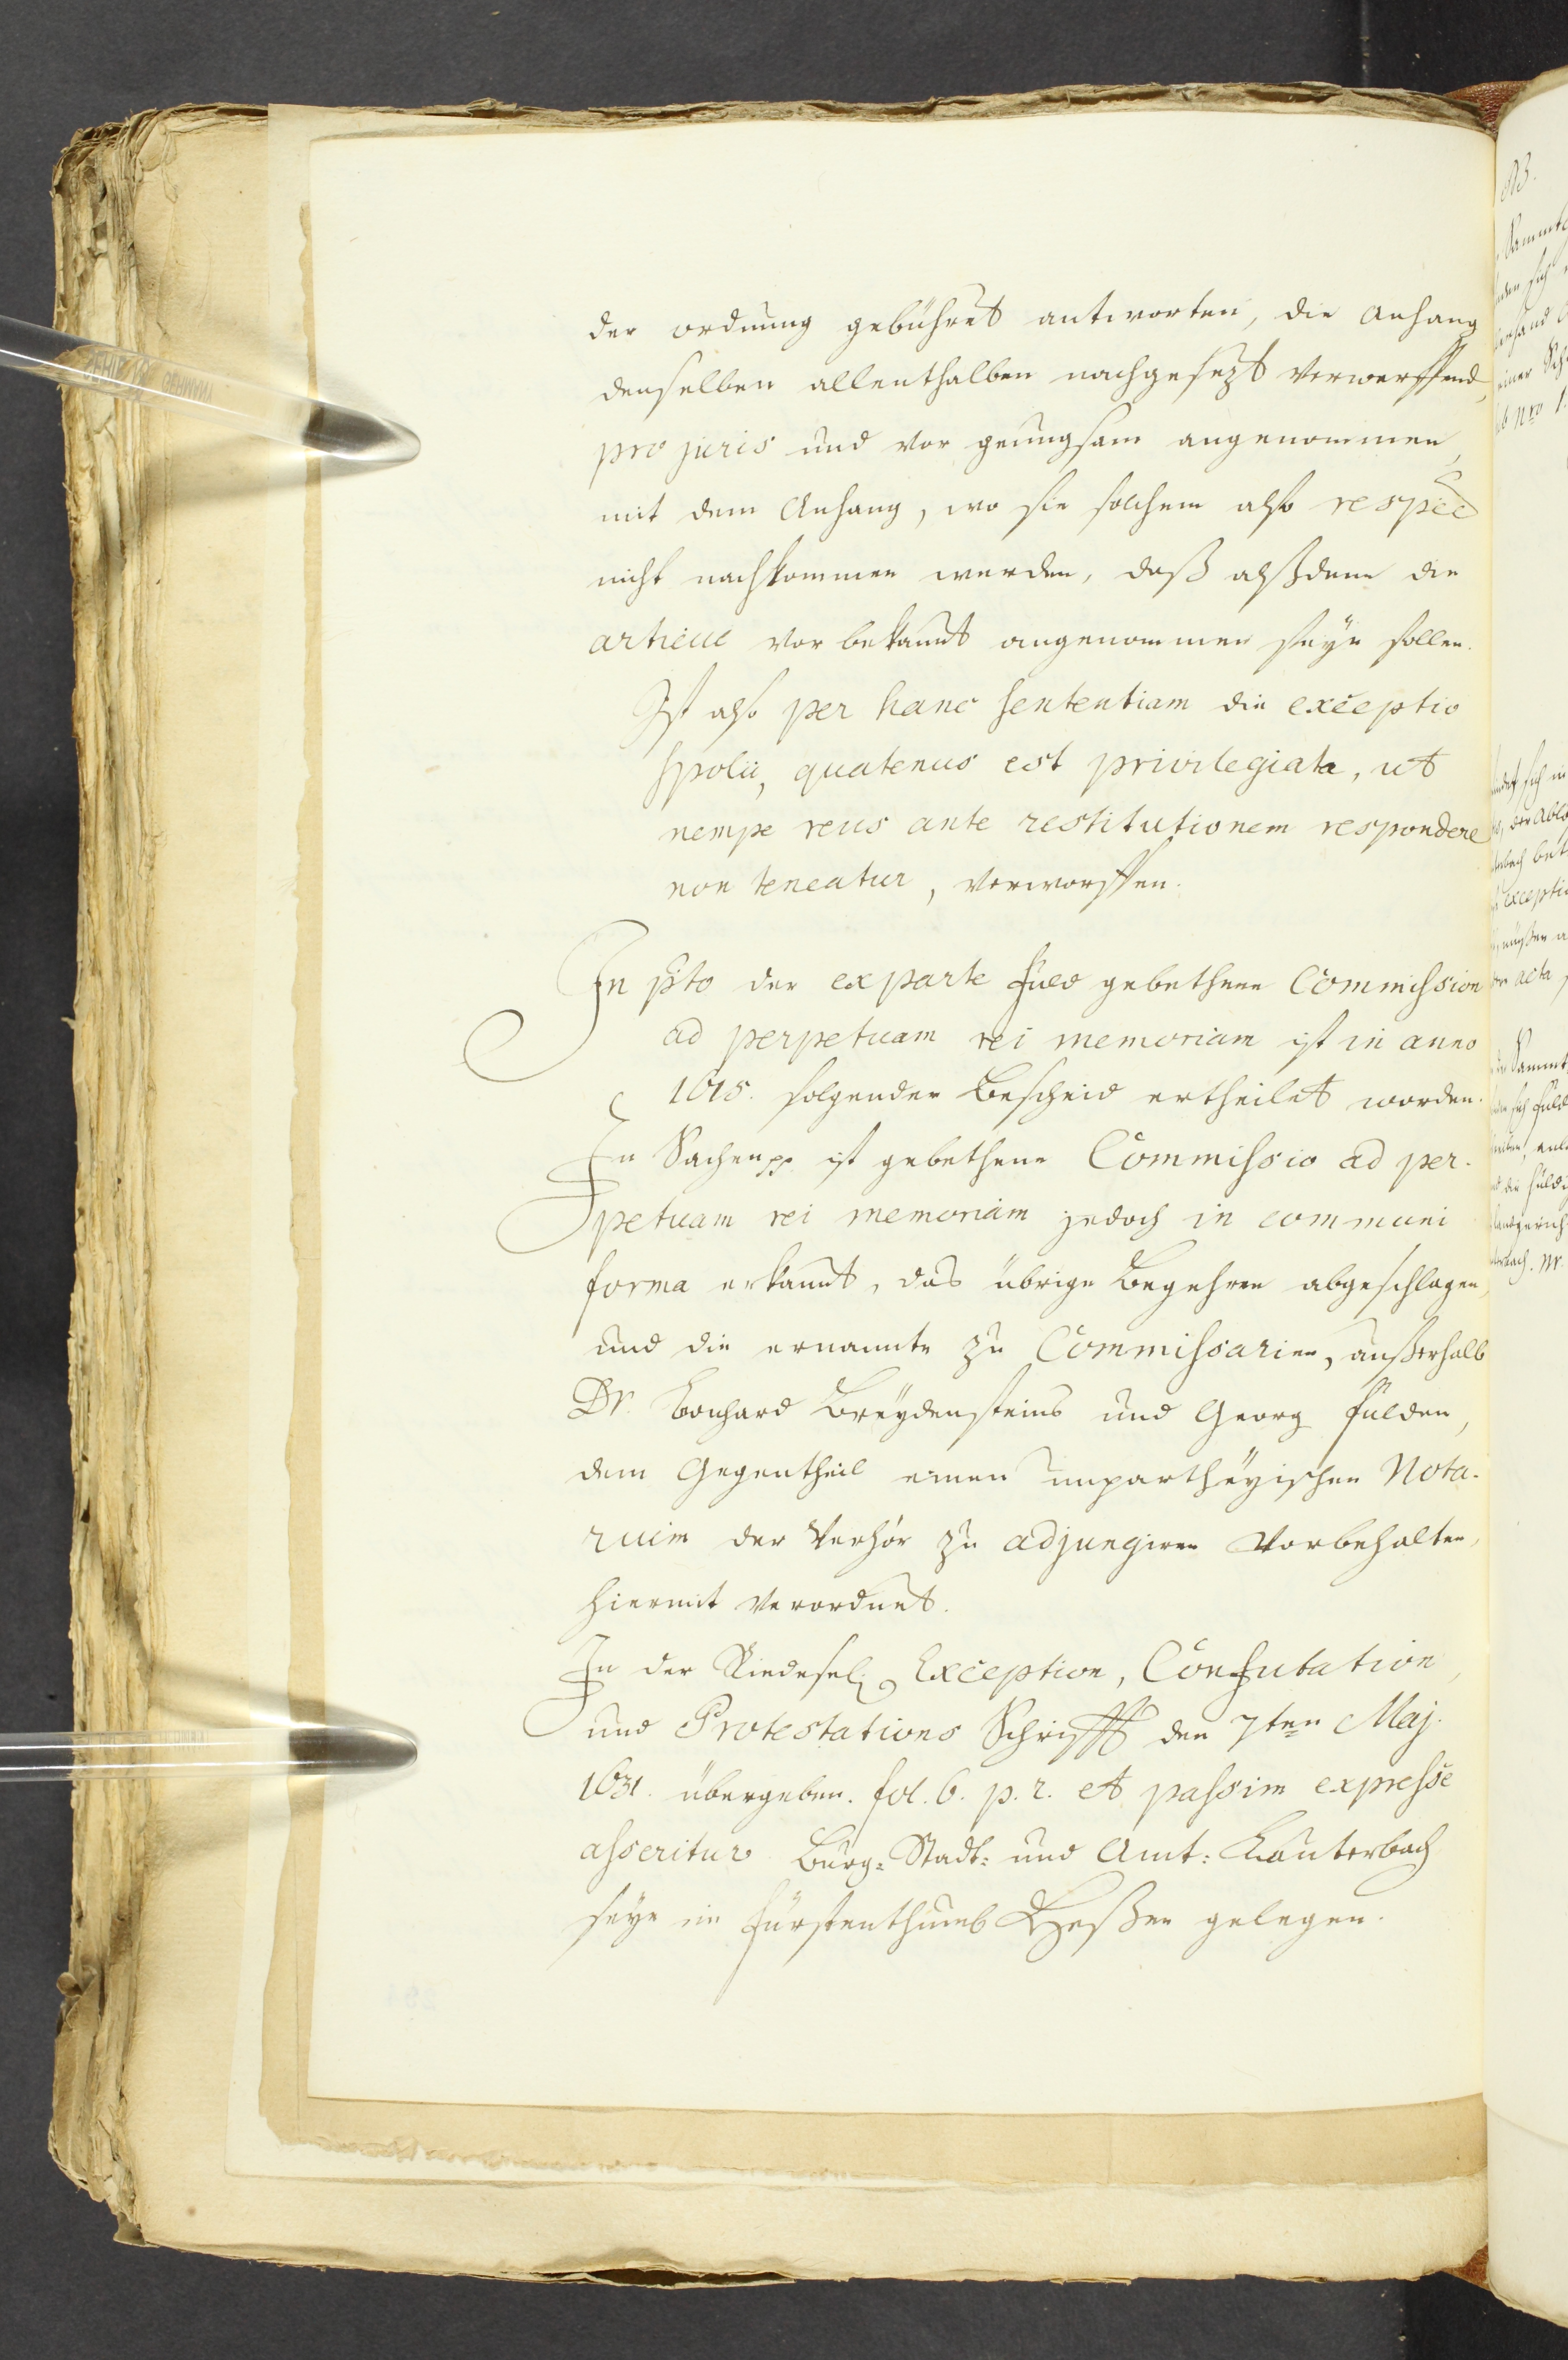 der ordnung gebühret antworten, die Anhang
denselben allenthalben nachgesezt verwerffend,
pro juris und vor genungsam angenommen,
mit dem Anhang, wo sie solchem also
nicht nachkommen werden, daß alßdann die
articul vor bekannt angenommen seyn sollen.
Ist also per hanc sententiam die exceptio
spolii, quatenus est privilegiata, ut
nempe reus ante restitutionem respondere
non teneatur, verworffen.
In pto der ex parte Fuld gebethene Commission
ad perpetuam rei memoriam ist in anno
1615. folgender Bescheid ertheilet worden.
In Sachen pp. ist gebethene Commissio ad per-
petuam rei memoriam jedoch in communi
forma erkannt, das übrige Begehren abgeschlagen,
und die ernannte zu Commissarien, außerhalb
Dr. Breydensteins und Georg Fulden,
dem Gegentheil einen unpartheyischen Nota-
rium der Verhör zu adjungiren vorbehalten,
hiermit verordnet.
In der Riedesel. Exception, Confutation,
und Protestations Schrifft den 7ten Maj.
1631. übergeben. fol. 6. p. 2. et passim expresse
asseritur Burg- Stadt- und Amt: Lauterbach
seye im Fürstenthumb Heßen gelegen.